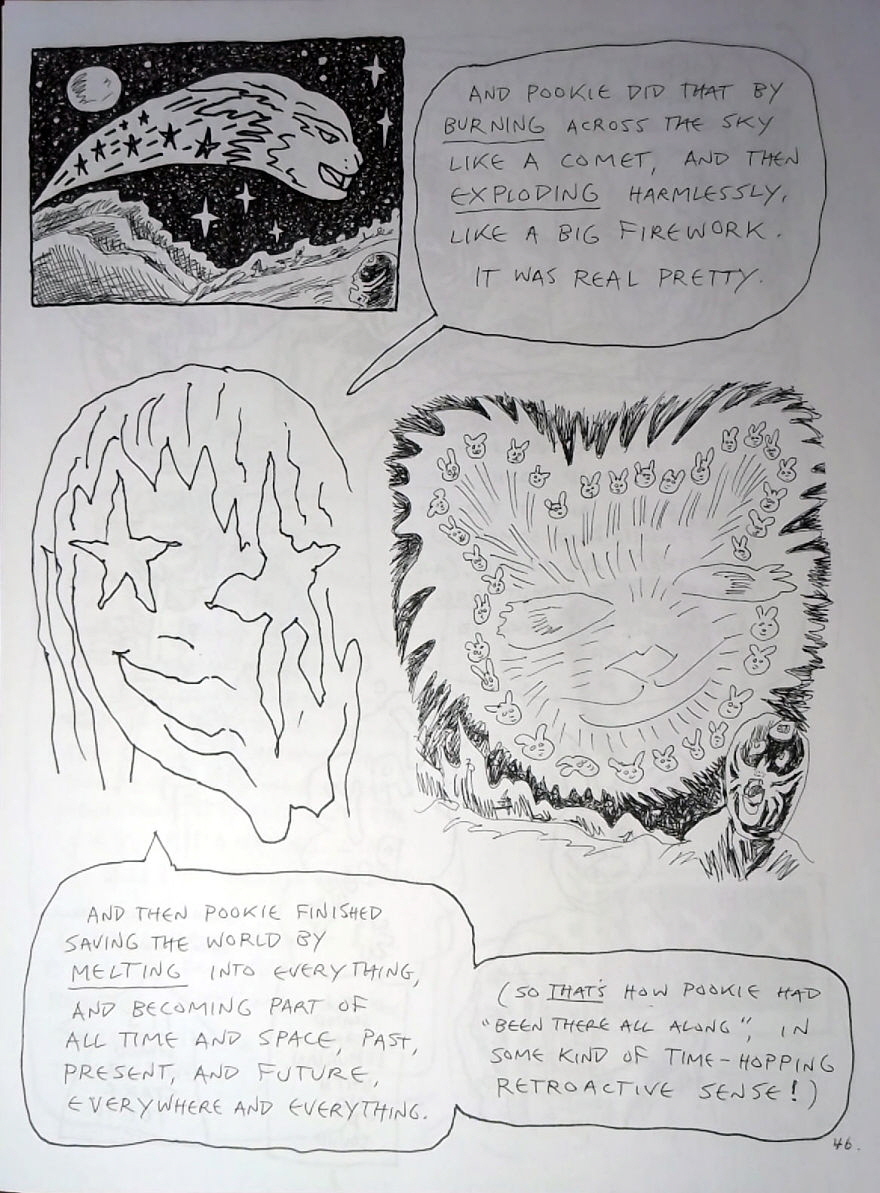 AND POOKIE DID THAT BY
BURNING ACROSS THE SKY
LIKE A COMET, AND THEN
EXPLODING HARMLESSLY,
LIKE A BIG FIREWORK.
IT WAS REAL PRETTY.
AND THEN POOKIE FINISHED
SAVING THE WORLD BY
MELTING INTO EVERYTHING,
AND BECOMING PART OF
ALL TIME AND SPACE, PAST,
PRESENT, AND FUTURE,
EVERYWHERE AND EVERYTHING.
(SO THAT'S HOW POOKIE HAD
"BEEN THERE ALL ALONG", IN
SOME KIND OF TIME-HOPPING
RETROACTIVE SENSE!)
46.